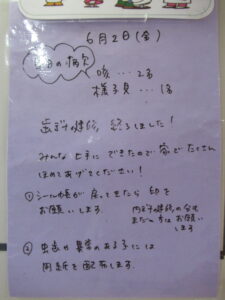 6月2日(金)
今日の病欠
咳…2名
様子見…1名
歯ブラシ健診、終了しました!
みんな上手にできたので家でたくさん
ほめてあげてください!
①シール帳が戻ってきたら印を
お願いします。
内科健診の分も
まだの方はお願い
します
② 虫歯や異常のある子には
用紙を配布します。